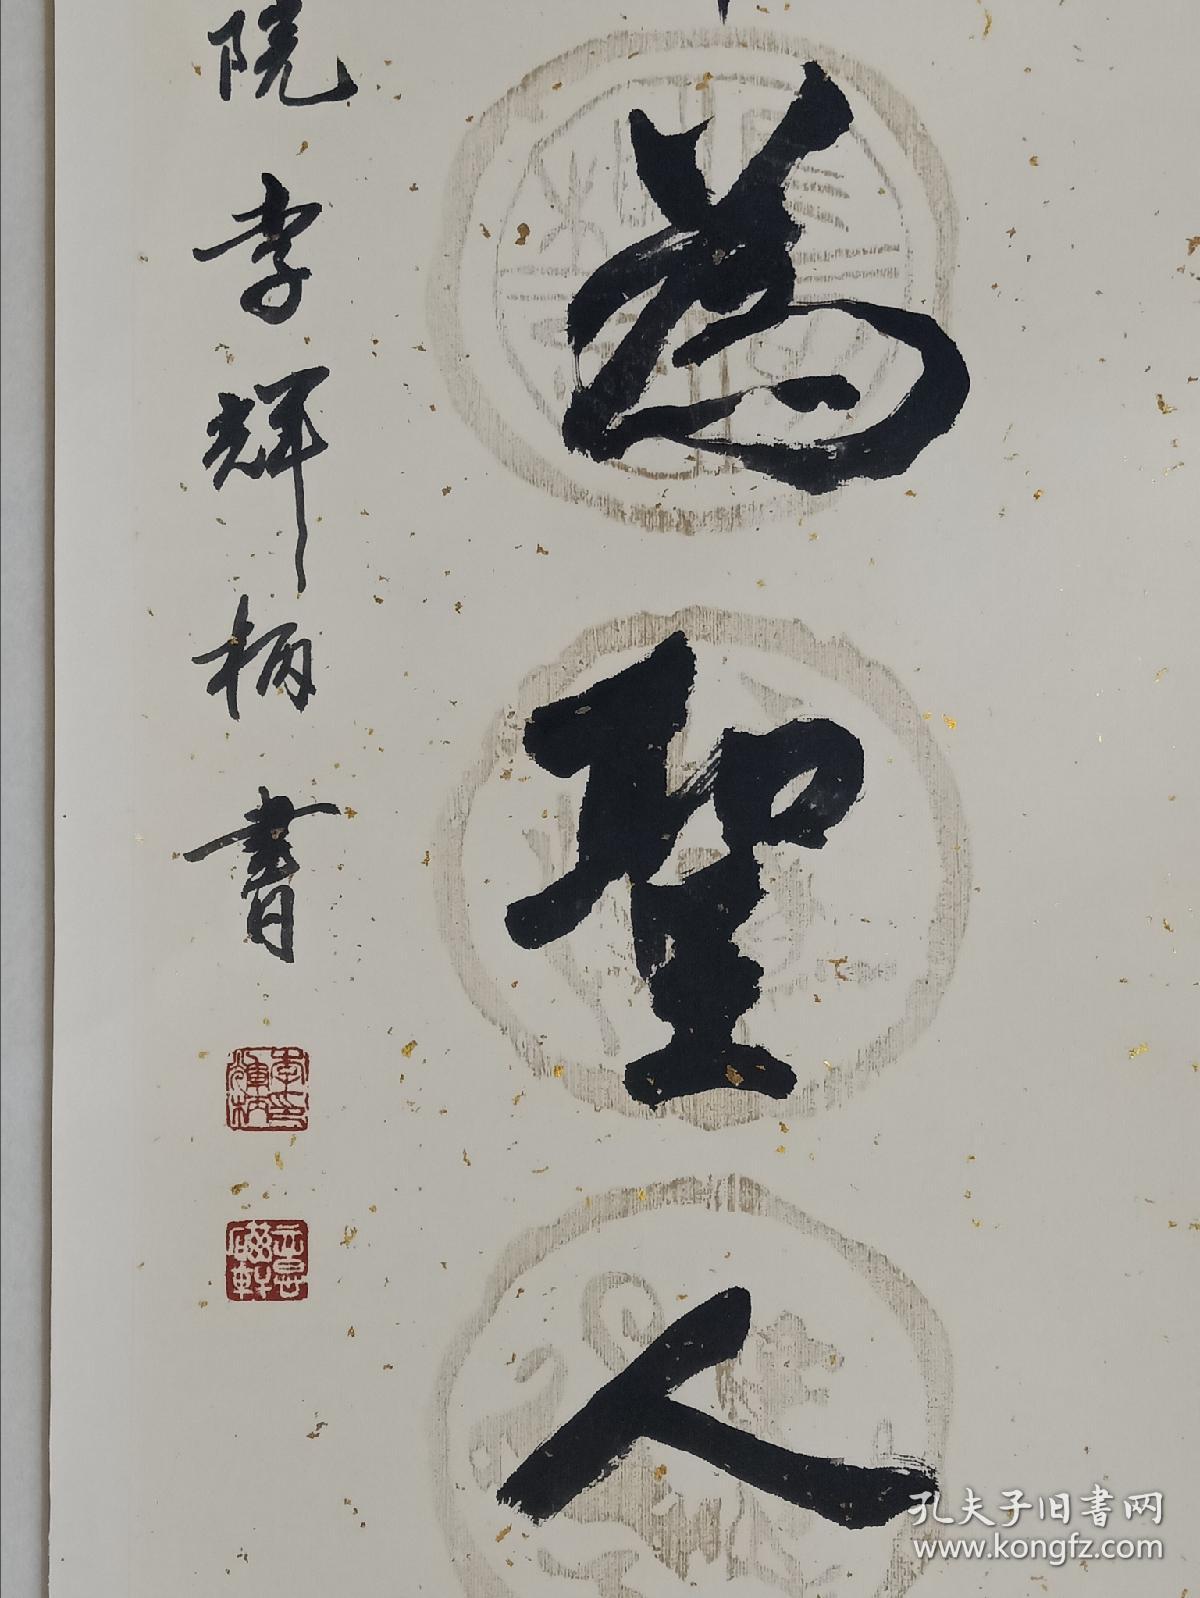 為聖人
院李輝柄書
孔夫子旧書网
www.kongfz.com